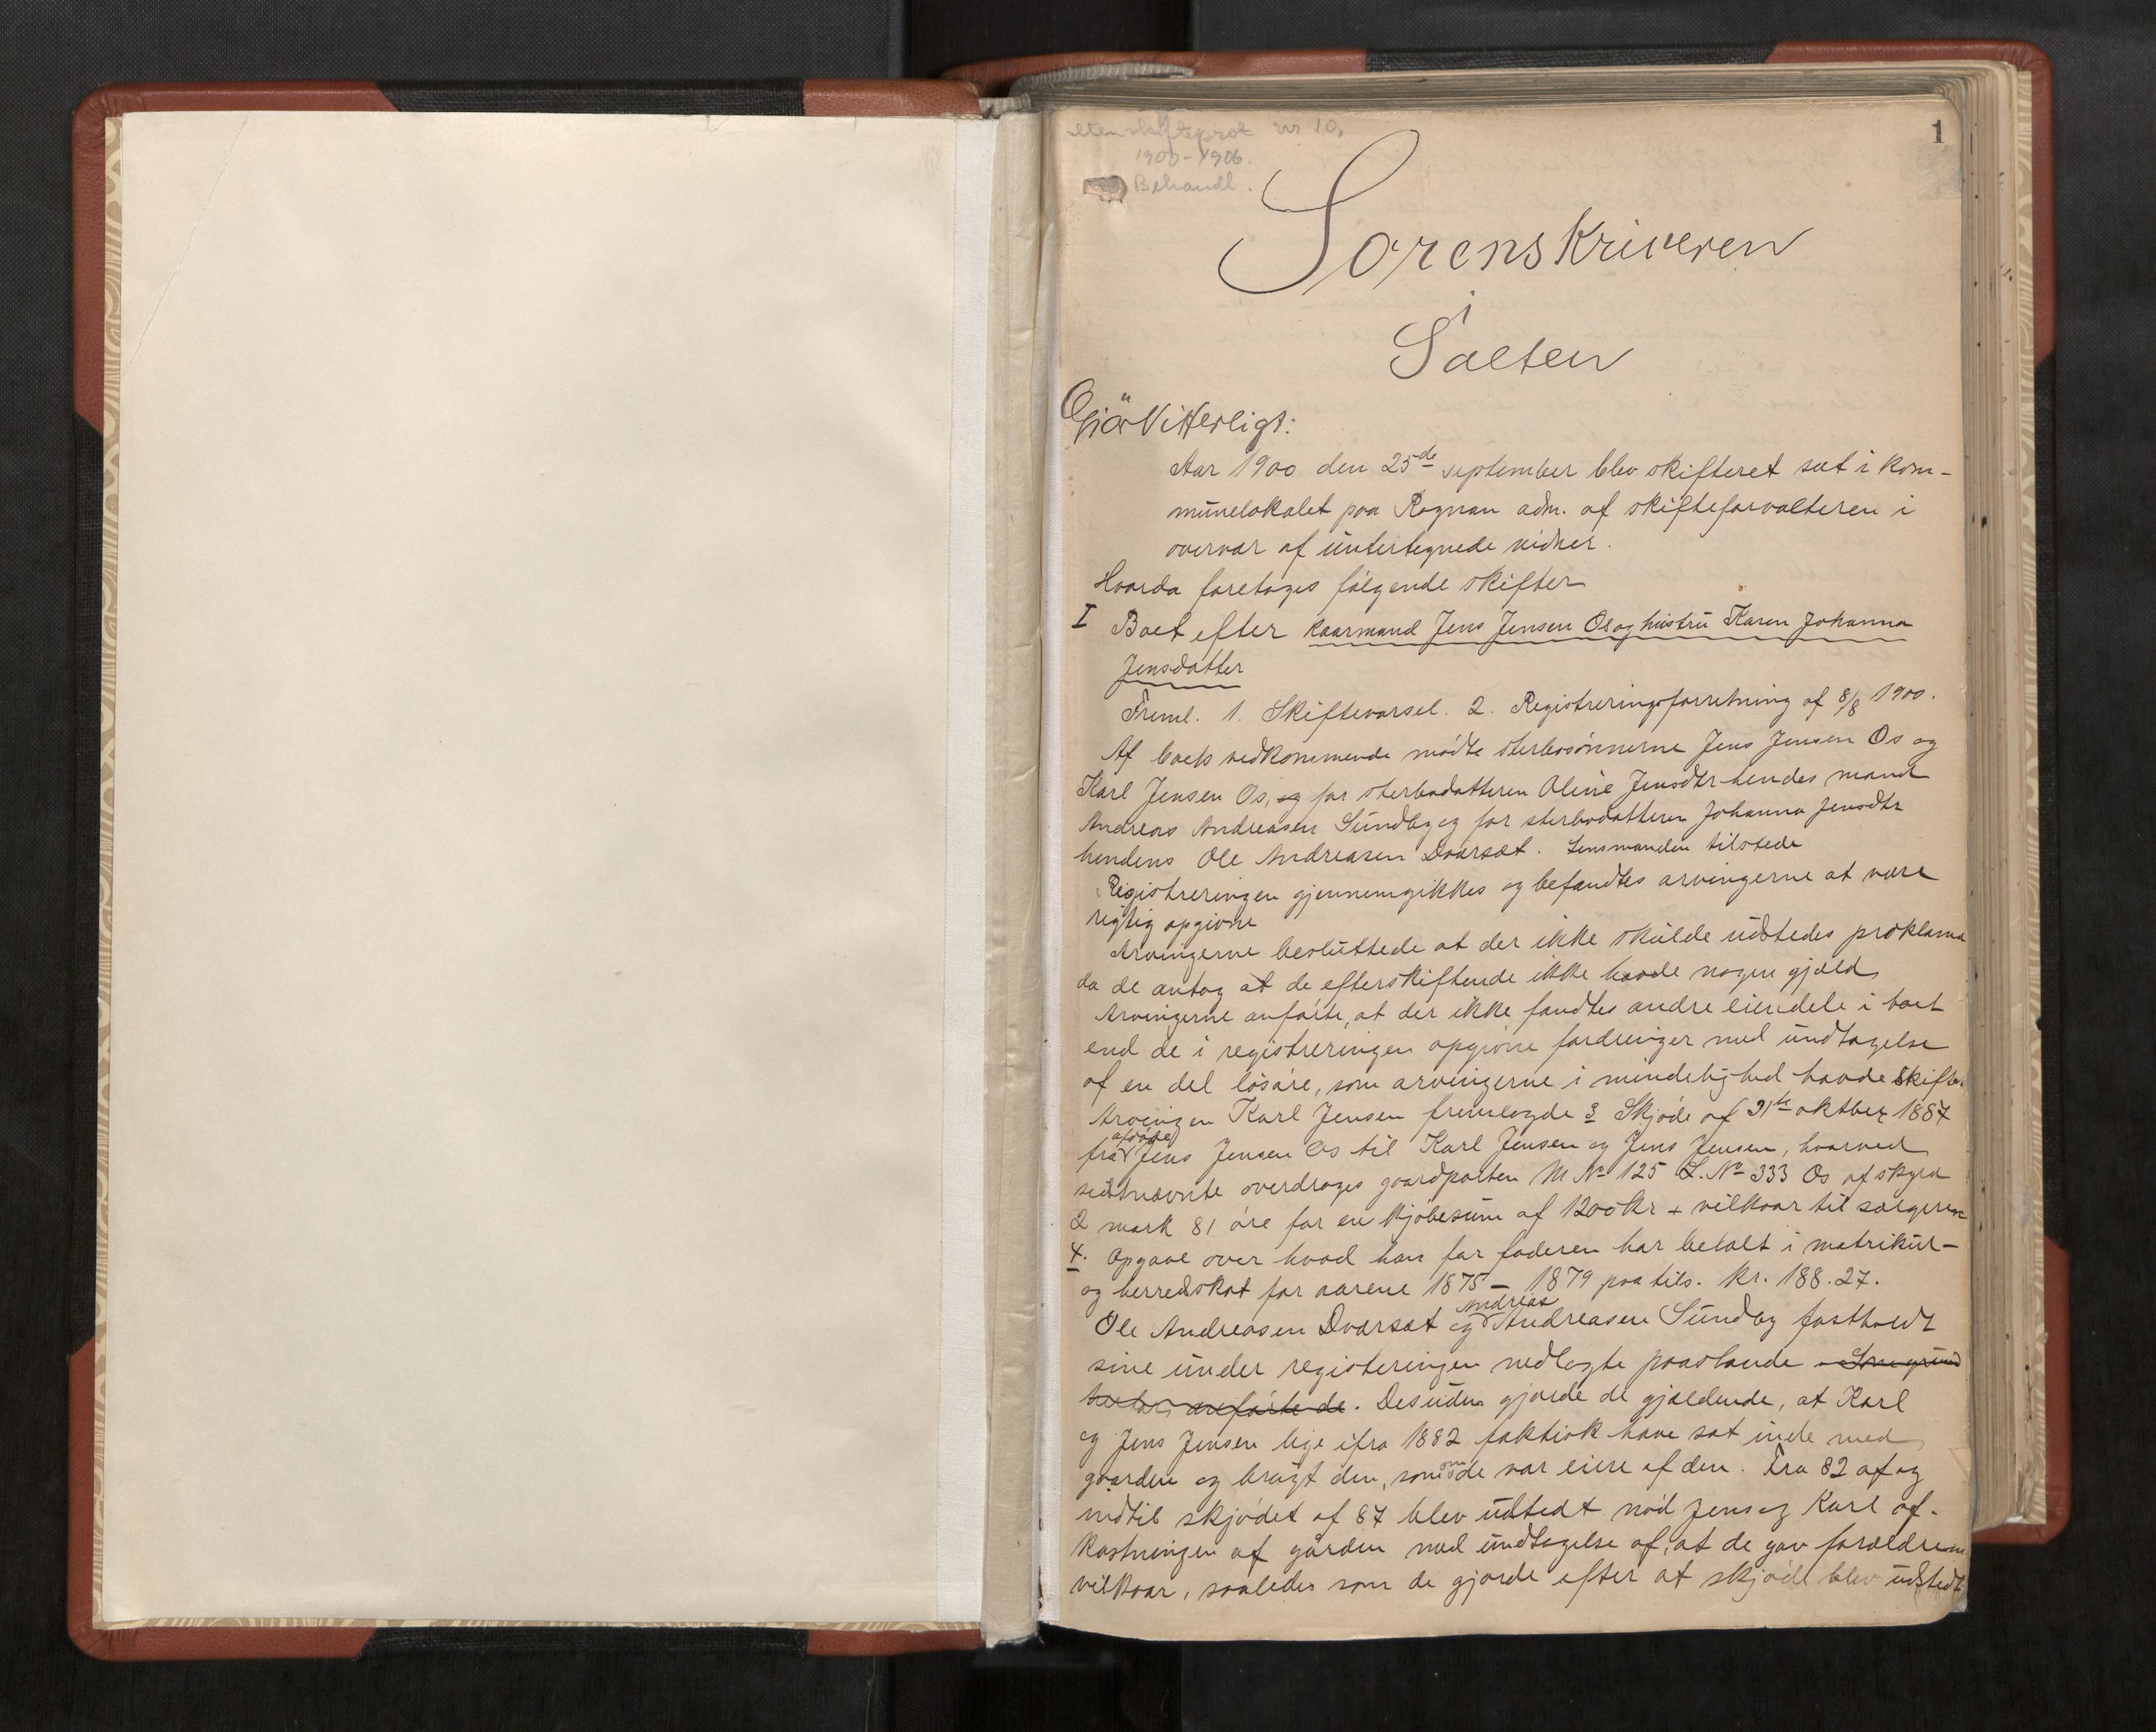 skifteprot nr 10,
1900-1906.
Behandl.
1
Sorenskriveren
i
Salten
Giør Vitterligt:
Aar 1900 den 25de september blev skifteret sat i kom-
munelokalet paa Rognan adm. af skifteforvalteren i
overvær af undertegnede vidner.
Hvorda foretages følgende skifter
I Boet efter kaarmand Jens Jensen Os og hustru Karen Johanna
Jensdatter
Freml. 1. Skiftevarsel. 2. Registreringsforretning af 8/8 1900.
Af boets vedkommende mødte sterbosønnerne Jens Jensen Os og
Karl Jensen Os, og for sterbodatteren Oline Jensdtr hendes mand
Andreas Andreasen Sundby og for sterbodatteren Johanna Jensdtr
hendens Ole Andreasen Dvarsæt. Lensmanden tilstede
Registreringen gjennemgikkes og befandtes arvingerne at være
rigtig opgivne
Arvingerne besluttede at der ikke skulde udstedes proklama
da de antog at de efterskiftende ikke havde nogen gjæld
Arvingerne anførte, at der ikke fandtes andre eiendele i boet
end de i registreringen opgivne fordringer med undtagelse
af en del løsøre, som arvingerne i mindelighed havde skiftet
Arvingen Karl Jensen fremlagde 3 Skjøde af 31te oktber 1887
fra afdøde Jens Jensen Os til Karl Jensen og Jens Jensen, hvorved
sidstnævnte overdrages gaardparten M No 125 L. No 333 Os af skyld
2 mark 81 øre for en kjøbesum af 1200 kr + vilkaar til sælgeren
4. Opgave over hvad han for faderen har betalt i matrikul-
og herredskat for aarene 1875 - 1879 paa tils. kr. 188.27.
Ole Andreasen Dvarsæt og Andreas Andreasen Sundby fastholdt
sine under registeringen nedlagte paastande
anførte de. Desuden gjorde de gjældende, at Karl
og Jens Jensen lige ifra 1882 faktisk have sat inde med
gaarden og brugt den, som om de var eiere af den. Fra 82 af og
indtil skjødet af 87 blev udstedt nød Jens og Karl af-
kastningen af gården med undtagelse af, at de gav forældrene
vilkaar, saaledes som de gjorde efter at skjøde blev udstedt